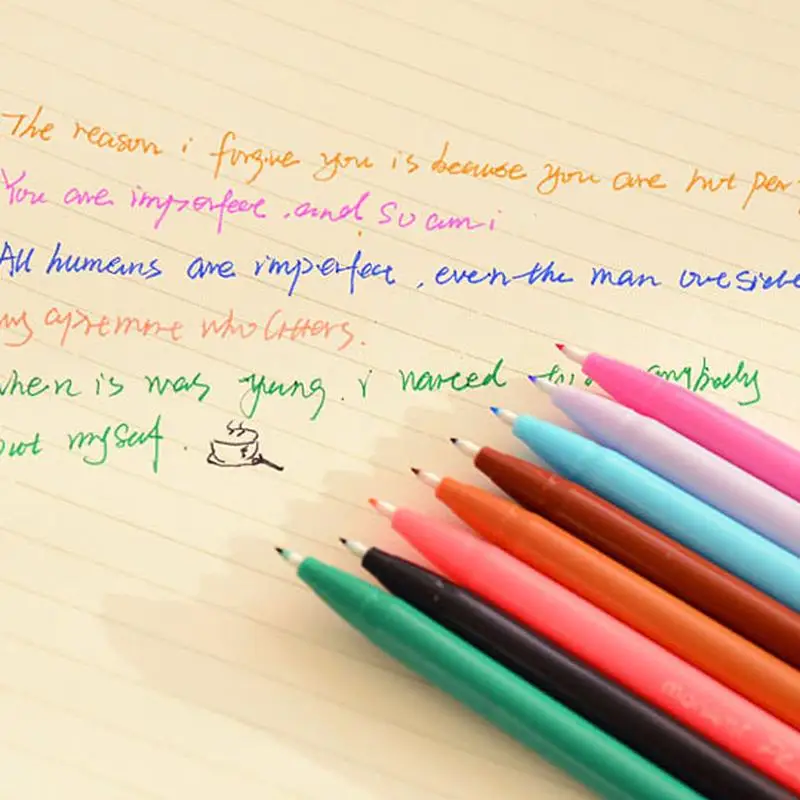 The reason i forgive you is because you are not per
You are imperfect, and so am i
All humans are imperfect, even the man outside
my apremine who litters.
when is was yung. i
anybody
but myself.